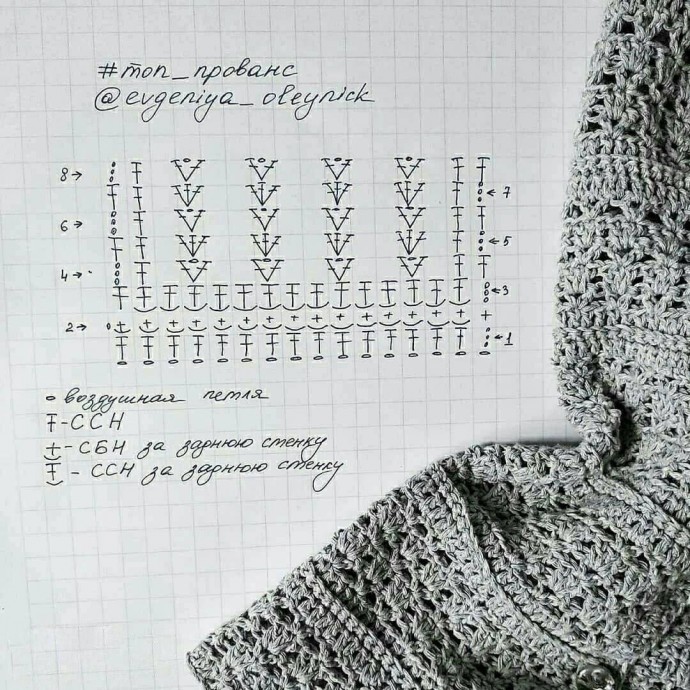 #топ_прованс
@evgeniya_oleynick
8→
←7
6→
←5
4→
←3
2→
←1
воздушная петля
- ССН
- СБН за заднюю стенку
- ССН за заднюю стенку